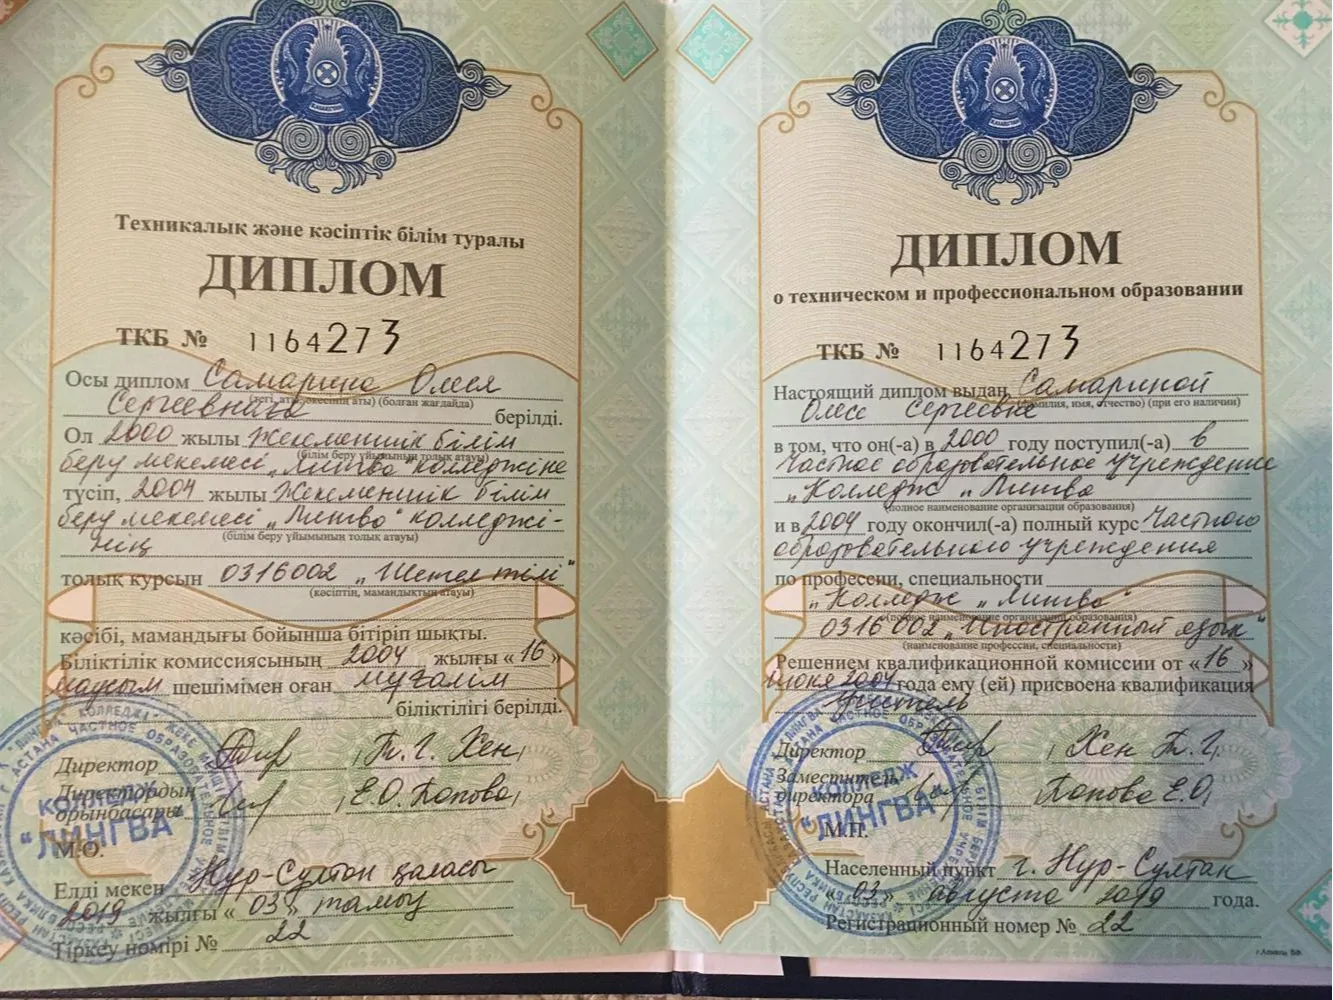 Техникалық және кәсіптік білім туралы
ДИПЛОМ
ТКБ № 1164273
Осы диплом Самарина Олеся
(тегі, аты, әкесінің аты) (болған жағдайда)
Сергеевнаға берілді.
Ол 2000 жылы Жекеменшік білім
(білім беру ұйымының толық атауы)
беру мекемесі „Лингва" колледжіне
түсіп, 2004 жылы Жекеменшік білім
беру мекемесі „Лингва" колледжі-
(білім беру ұйымының толық атауы)
нің
толық курсын 0316002 „Шетел тілі"
(кәсіптің, мамандықтың атауы)
кәсібі, мамандығы бойынша бітіріп шықты.
Біліктілік комиссиясының 2004 жылғы «16»
маусым шешімімен оған мұғалім
біліктілігі берілді.
Директор Т.Г. Хен
Директордың
орынбасары Е.О. Попова
М.О.
Елді мекен Нур-Султан қаласы
2019 жылғы «03» тамыз
Тіркеу нөмірі № 22
КОЛЛЕДЖ
"ЛИНГВА"
ДИПЛОМ
о техническом и профессиональном образовании
ТКБ № 1164273
Настоящий диплом выдан Самариной
(фамилия, имя, отчество) (при его наличии)
Олесе Сергеевне
в том, что он(-а) в 2000 году поступил(-а) в
Частное образовательное учреждение
„Колледж „Лингва"
(полное наименование организации образования)
и в 2004 году окончил(-а) полный курс Частного
образовательного учреждения
по профессии, специальности
„Колледж „Лингва"
(полное наименование организации образования)
0316002 „Иностранный язык"
(наименование профессии, специальности)
Решением квалификационной комиссии от «16»
июня 2004 года ему (ей) присвоена квалификация
Учитель
Директор Хен Т.Г.
Заместитель
директора Попова Е.О.
М.П.
Населенный пункт г. Нур-Султан
«03» августа 2019 года.
Регистрационный номер № 22
КОЛЛЕДЖ
"ЛИНГВА"